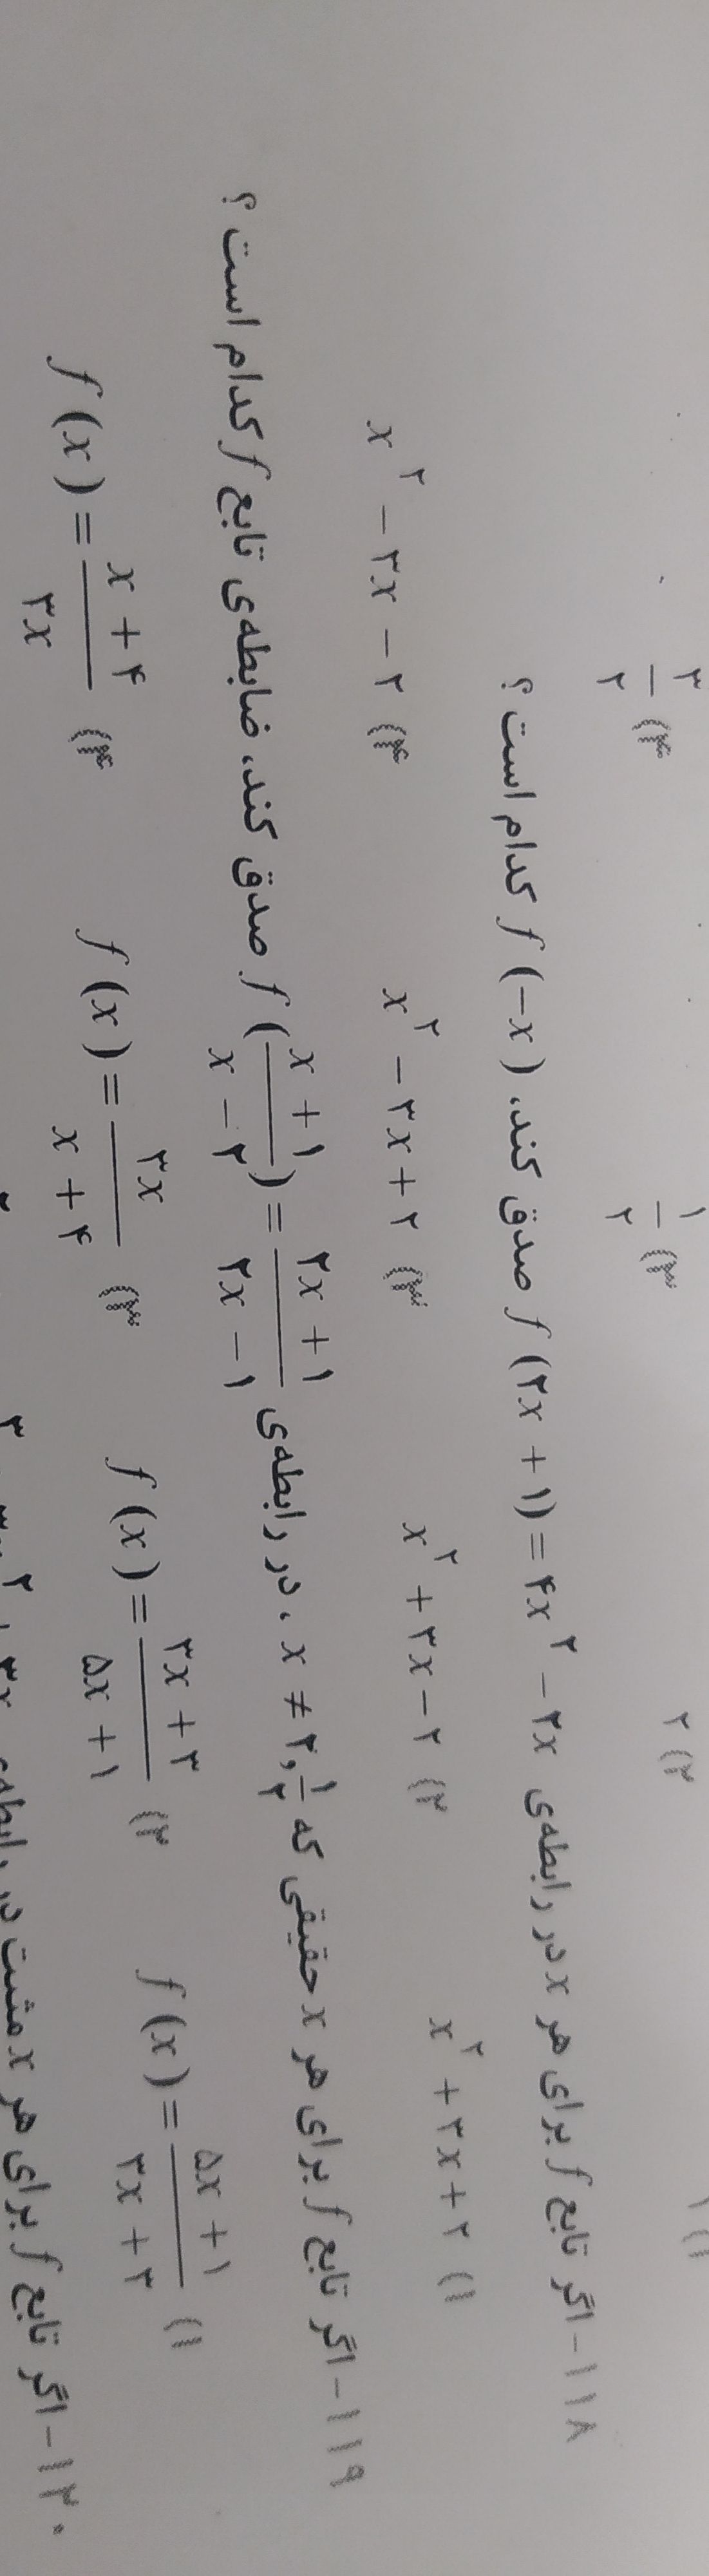 ۲) ۲ ۳) ۱/۲ ۴) ۳/۲
۱۱۸- اگر تابع f برای هر x در رابطه‌ی f(۲x + ۱) = ۴x^۲ - ۲x صدق کند، f(-x) کدام است ؟
۱) x^۲ + ۳x + ۲ ۲) x^۲ + ۳x - ۲ ۳) x^۲ - ۳x + ۲ ۴) x^۲ - ۳x - ۲
۱۱۹- اگر تابع f برای هر x حقیقی که x ≠ ۲, ۱/۲ ، در رابطه‌ی f((x + ۱)/(x - ۲)) = (۲x + ۱)/(۲x - ۱) صدق کند، ضابطه‌ی تابع f کدام است ؟
۱) f(x) = (۵x + ۱)/(۳x + ۳) ۲) f(x) = (۳x + ۳)/(۵x + ۱) ۳) f(x) = ۳x/(x + ۴) ۴) f(x) = (x + ۴)/۳x
۱۲۰- اگر تابع f برای هر x مثبت در رابطه‌ی